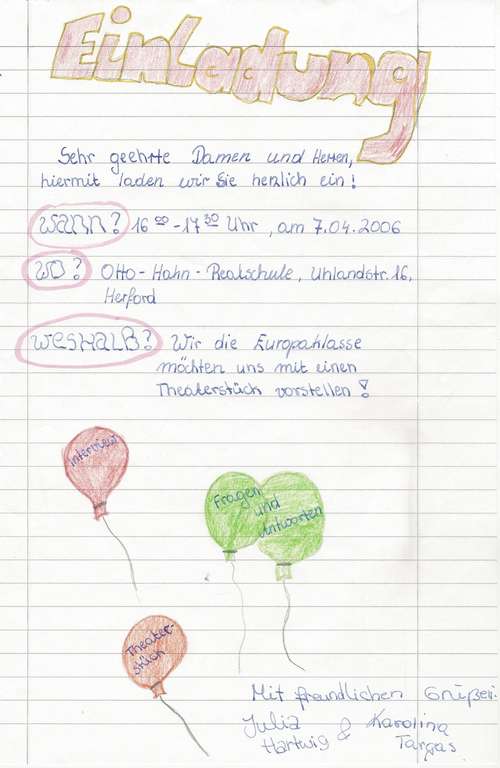 Einladung
Sehr geehrte Damen und Herren,
hiermit laden wir Sie herzlich ein!
Wann? 16 00 - 17 30 Uhr, am 7.04.2006
Wo? Otto-Hahn-Realschule, Uhlandstr. 16,
Herford
Weshalb? Wir die Europaklasse
möchten uns mit einen
Theaterstück vorstellen!
Interview
Fragen
und
Antworten
Theater-
stück
Mit freundlichen Grüßen
Julia & Karolina
Hartwig Targas